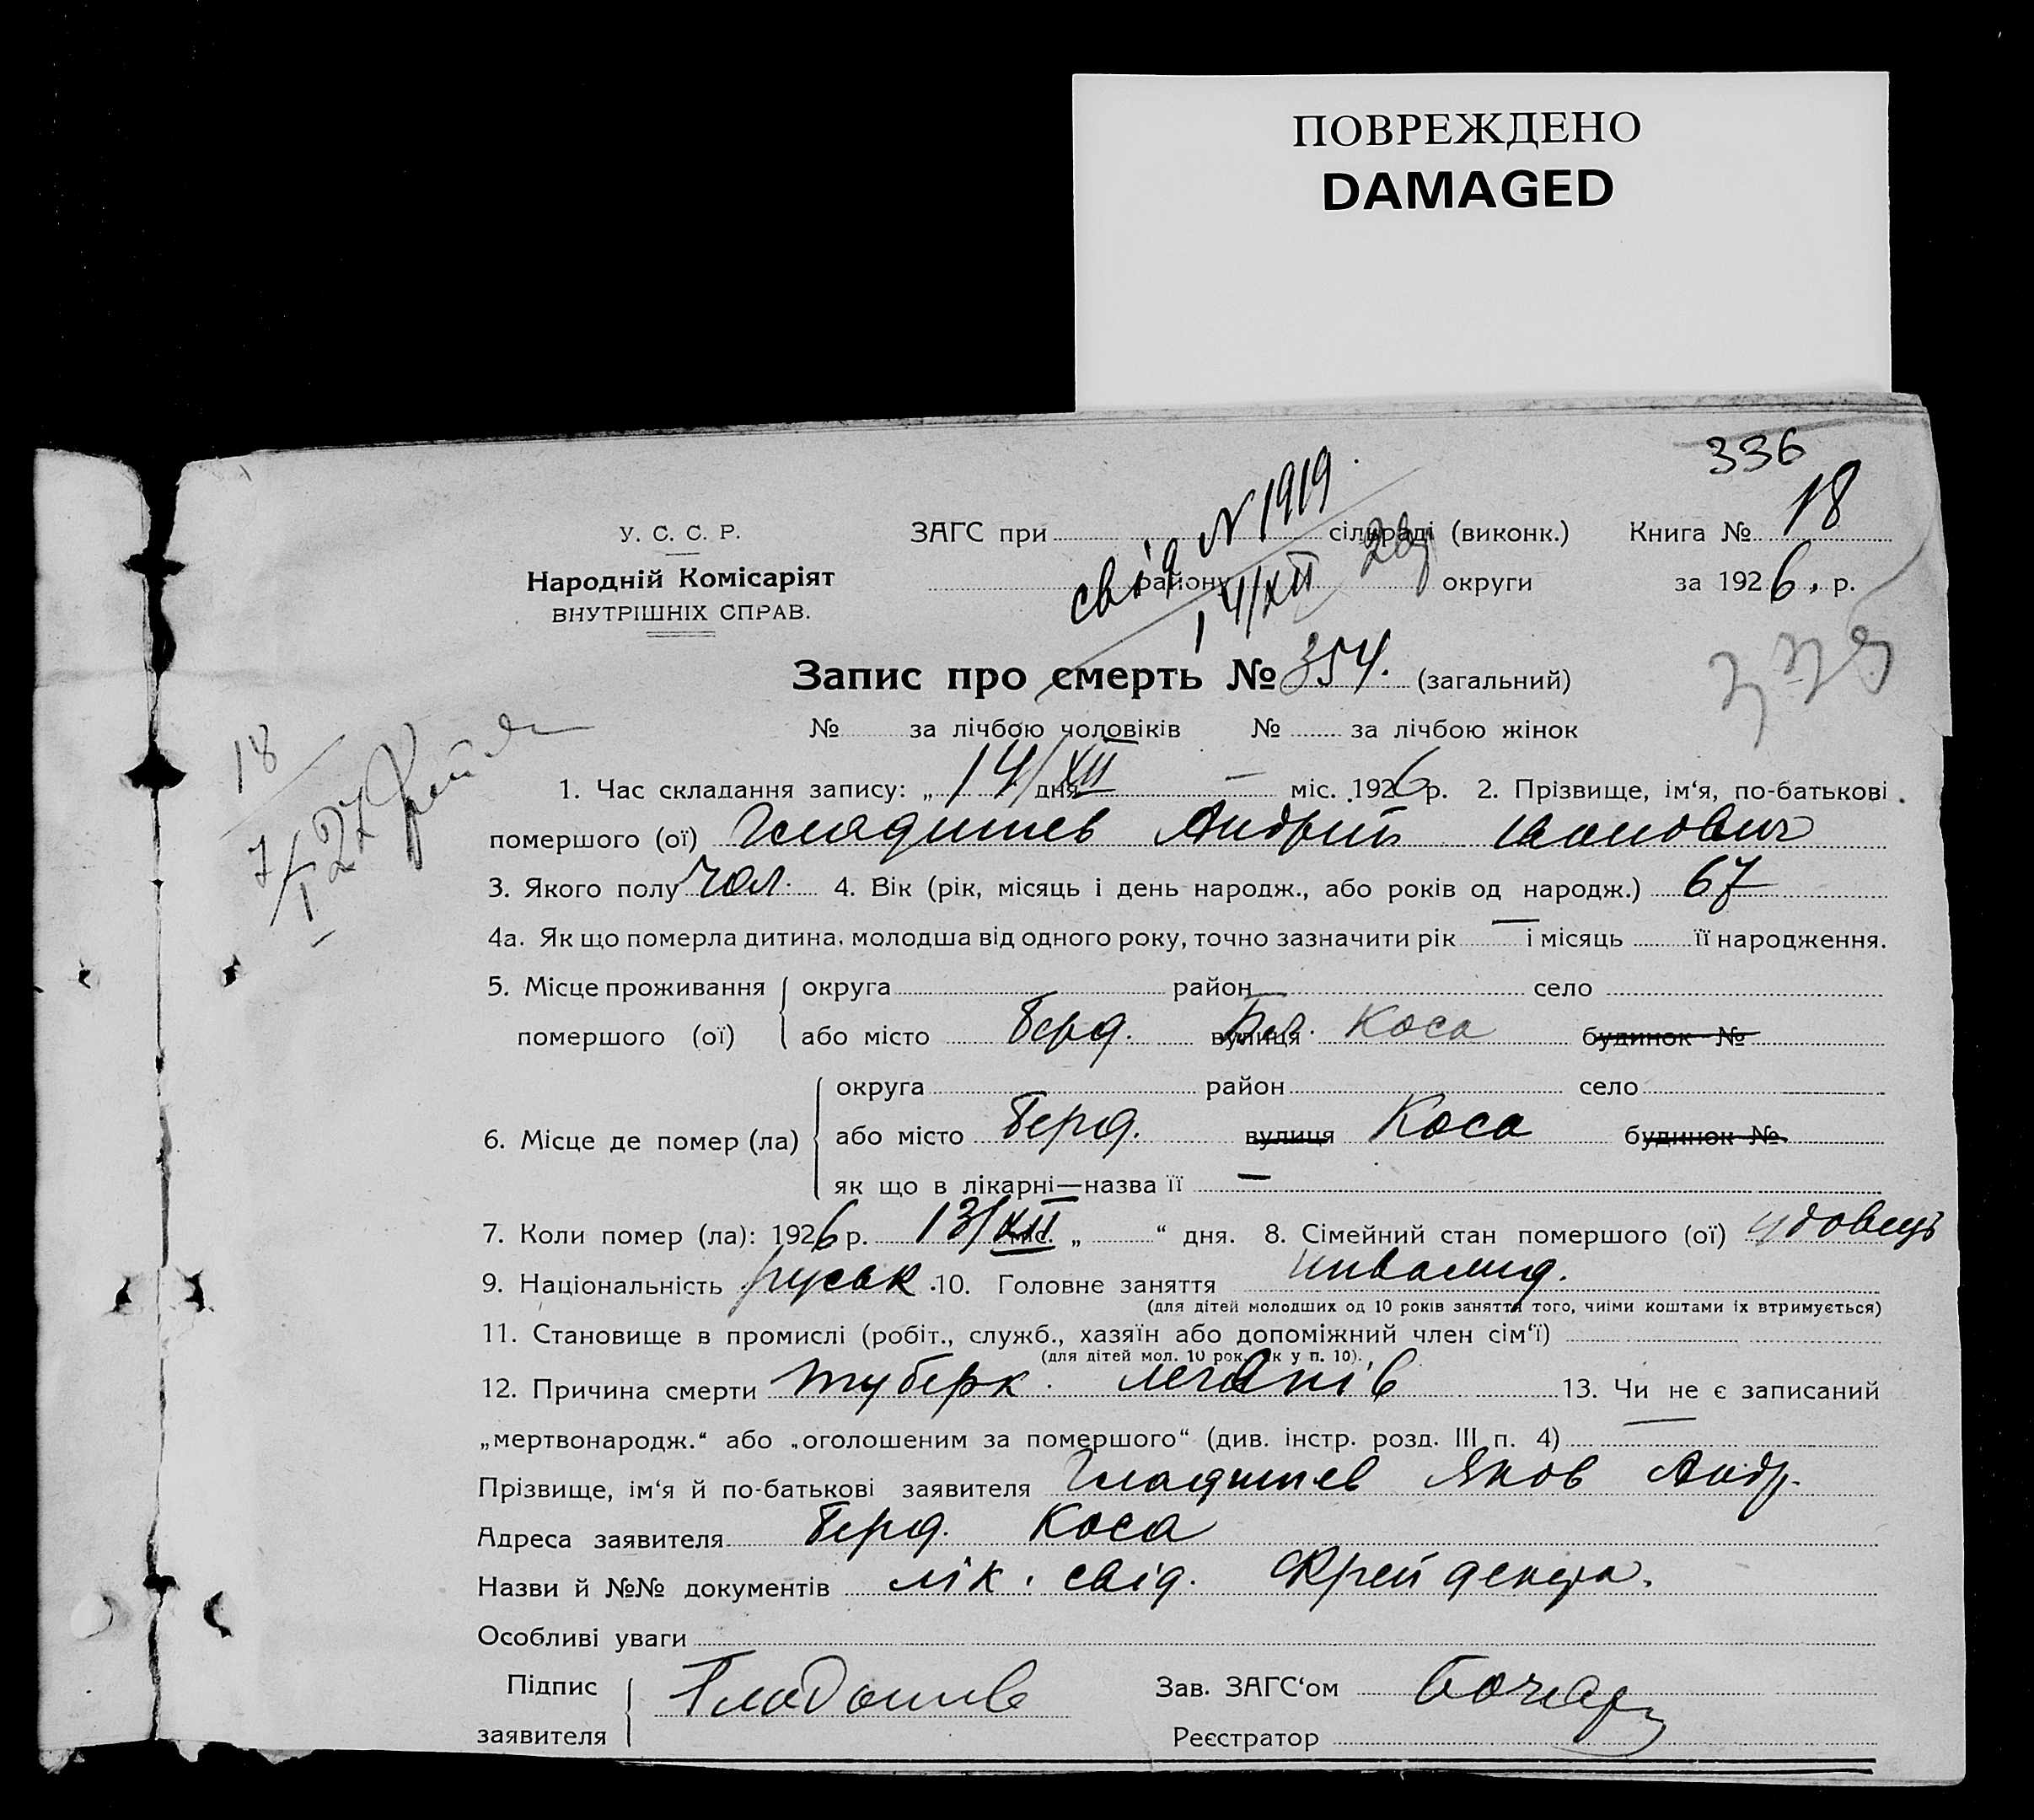 ПОВРЕЖДЕНО
DAMAGED
336
У. С. С. Р.
Народній Комісаріят
ВНУТРІШНІХ СПРАВ.
ЗАГС при сільраді (виконк.) Книга № 18
району округи за 1926. р.
свід N 1919
14/XII
Запис про смерть № 354. (загальний)
№ за лічбою чоловіків № за лічбою жінок
18
1. Час складання запису: „ 14/XII дня — міс. 1926 р. 2. Прізвище, ім‘я, по-батькові
помершого (ої) Гладишев Андрій Іванович
3. Якого полу чол. 4. Вік (рік, місяць і день народж., або років од народж.) 67
4а. Як що померла дитина, молодша від одного року, точно зазначити рік — і місяць її народження.
5. Місце проживання округа район село
помершого (ої) або місто Берд. вулиця Коса будинок №
округа район село
6. Місце де помер (ла) або місто Берд. вулиця Коса будинок №
як що в лікарні—назва її —
7. Коли помер (ла): 1926 р. 13/XII міс. „ “ дня. 8. Сімейний стан помершого (ої) удовець
9. Національність руськ. 10. Головне заняття инвалид.
(для дітей молодших од 10 років заняття того, чиїми коштами їх втримується)
11. Становище в промислі (робіт., служб., хазяїн або допоміжний член сім‘ї)
(для дітей мол. 10 рок. як у п. 10).
12. Причина смерти туберк. леганів 13. Чи не є записаний
„мертвонародж.“ або „оголошеним за помершого“ (див. інстр. розд. III п. 4) —
Прізвище, ім‘я й по-батькові заявителя Гладишев Яков Андр.
Адреса заявителя Берд. Коса
Назви й №№ документів лік. свід.
Особливі уваги
Підпис заявителя Гладышев Зав. ЗАГС‘ом Бочар
Реєстратор